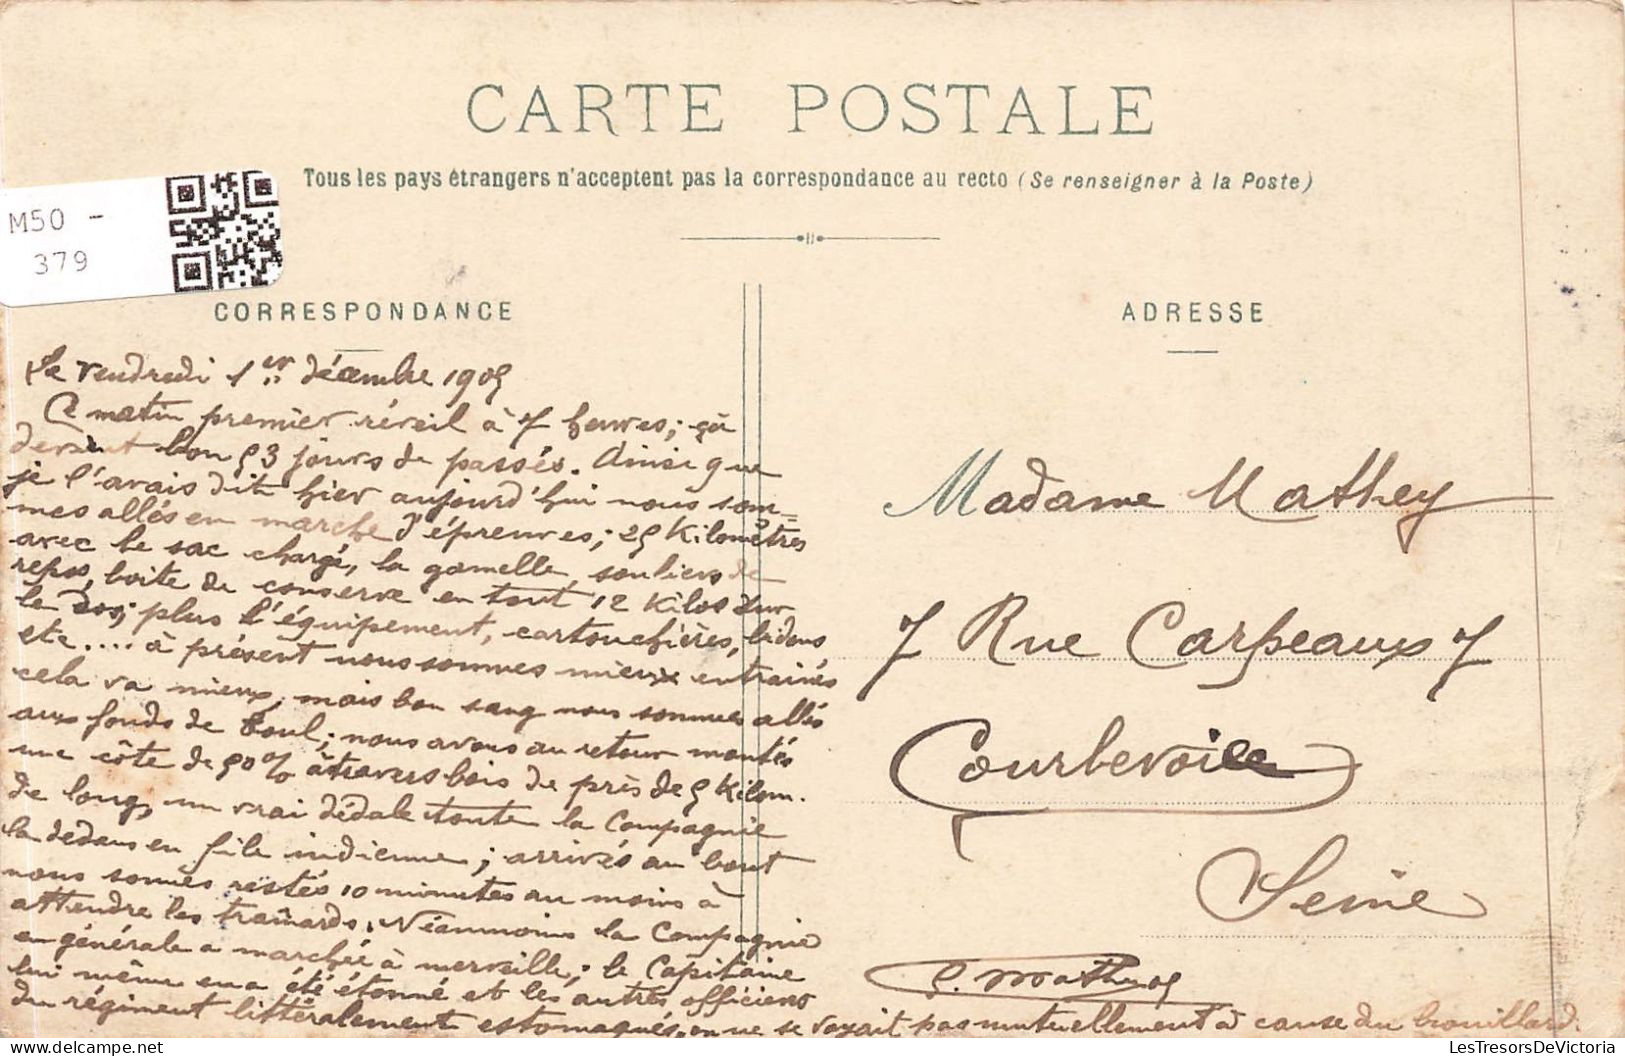 CARTE POSTALE
Tous les pays étrangers n'acceptent pas la correspondance au recto (Se renseigner à la Poste)
M50 -
379
CORRESPONDANCE
ADRESSE
Le vendredi 1er décembre 1905
Ce matin premier réveil à 7 heures; çà
devient bon 53 jours de passés. Ainsi que
je l'avais dit hier aujourd'hui nous som-
mes allés en marche d'épreuves; 25 Kilomètres
avec le sac chargé, la gamelle, souliers de
repos, boite de conserve en tout 12 Kilos sur
le dos; plus l'équipement, cartouchières, bidons
etc.... à présent nous sommes mieux entrainés
cela va mieux, mais bon sang nous sommes allés
aux fonds de Toul; nous avons au retour montés
une côte de 50% à travers bois de près de 5 Kilom.
de long, un vrai dédale toute la Compagnie
la dedans en file indienne; arrivés au bout
nous sommes restés 10 minutes au moins à
attendre les trainards. Néanmoins la Compagnie
en générale a marchée à merveille; le Capitaine
lui même en a été étonné et les autres officiers
du régiment littéralement estomaqués. on ne se voyait pas mutuellement à cause du brouillard.
Madame Mathey
7 Rue Carpeaux 7
Courbevoie
Seine
LesTresorsDeVictoria